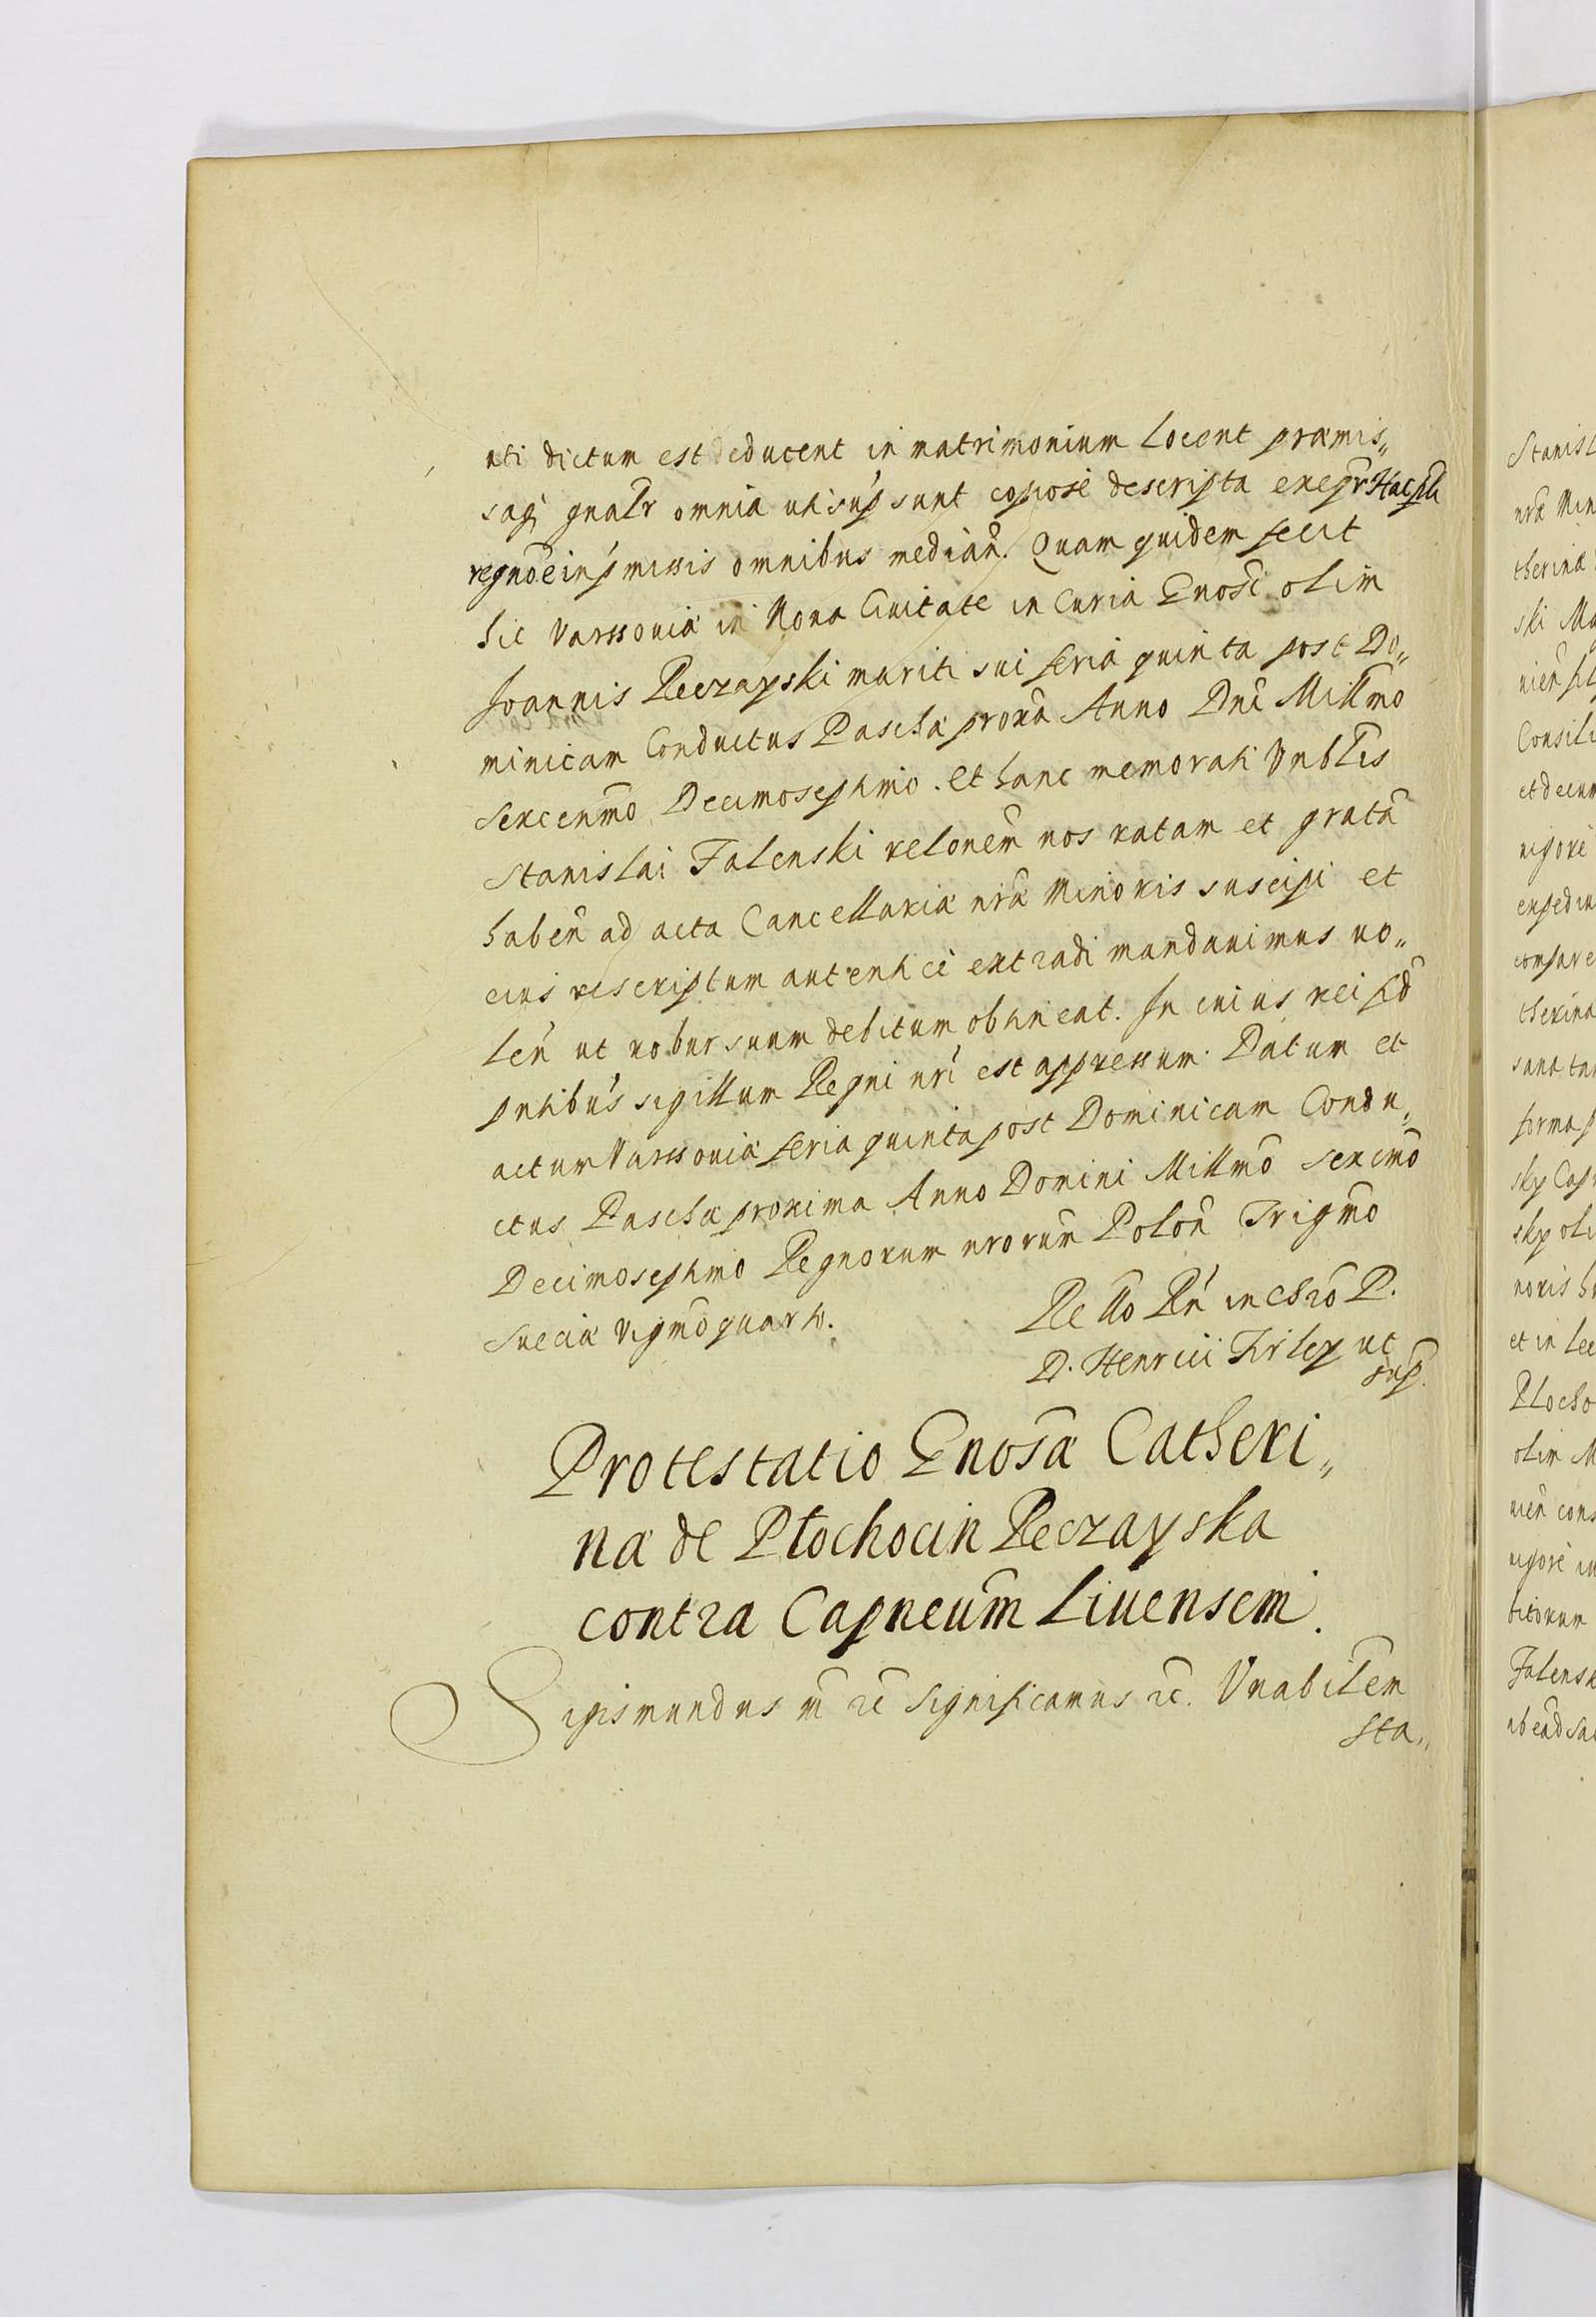 uti dictum est educent in matrimonium locent præmis„
saq; gnalr omnia uti sup sunt copose descripta exeqr Hac
regnoe in pmissis omnibus median. Quam quidem fecit
hic Varssouiæ in Noua Ciuitate in Curia Gnosi olim
Joannis Reczayski mariti sui feria quinta post Do„
minicam Conductus Paschæ proxa Anno Dni Millmo
Sexcenmo Decimoseptimo. Et hanc memorati Vnblis
Stanislai Falenski relonem nos ratam et grata
haben ad acta Cancellariæ nræ Minoris suscipi et
eius rescriptum autentice extradi mandauimus uo„
len ut robur suum debitum obtineat. In cuius rei fid
pntibus sigillum Regni nri est appressum. Datum et
actum Varssouiæ feria quinta post Dominicam Condu„
ctus Paschæ proxima Anno Domini Millmo Sexcmo
Decimoseptimo Regnorum nrorum Polon Trigmo
Sueciæ Vigmo quarto.
Rello Rn in Chro P.
D. Henrici Firley ut
sup.
Protestatio Gnosæ Catheri„
næ de Płochocin Reczayska
contra Capneum Liuensem.
Sigismundus m rc significamus rc. Vnabilem
Sta„
Stanisl
nræ Min
therinæ
ski Ma
Consili
et decum
uigore
expediu
compare
therina
forma p
sky Cap
sky oli
noris
et in lec
Płocho
olim M
uien cons
uigore in
Falensk